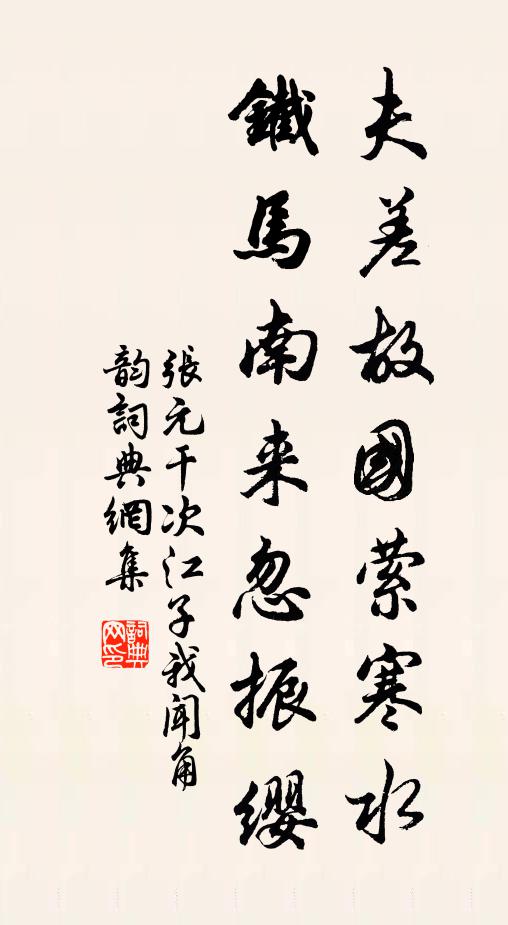 夫差故國縈寒水
鐵馬南来忽振纓
張元干次江子我聞角
韵詞典網集
詞典网印